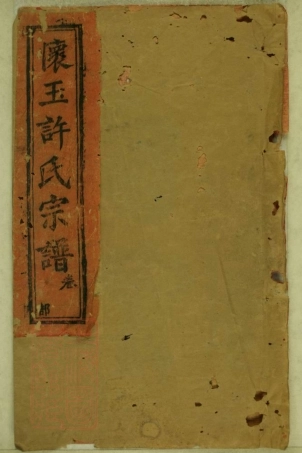 懷玉許氏宗譜